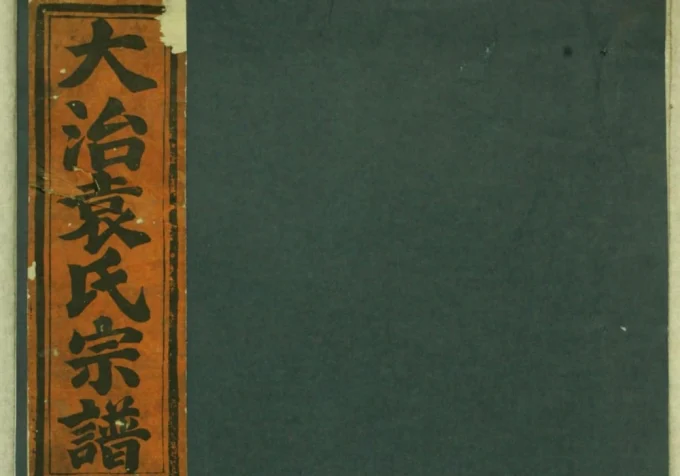 大冶袁氏宗譜